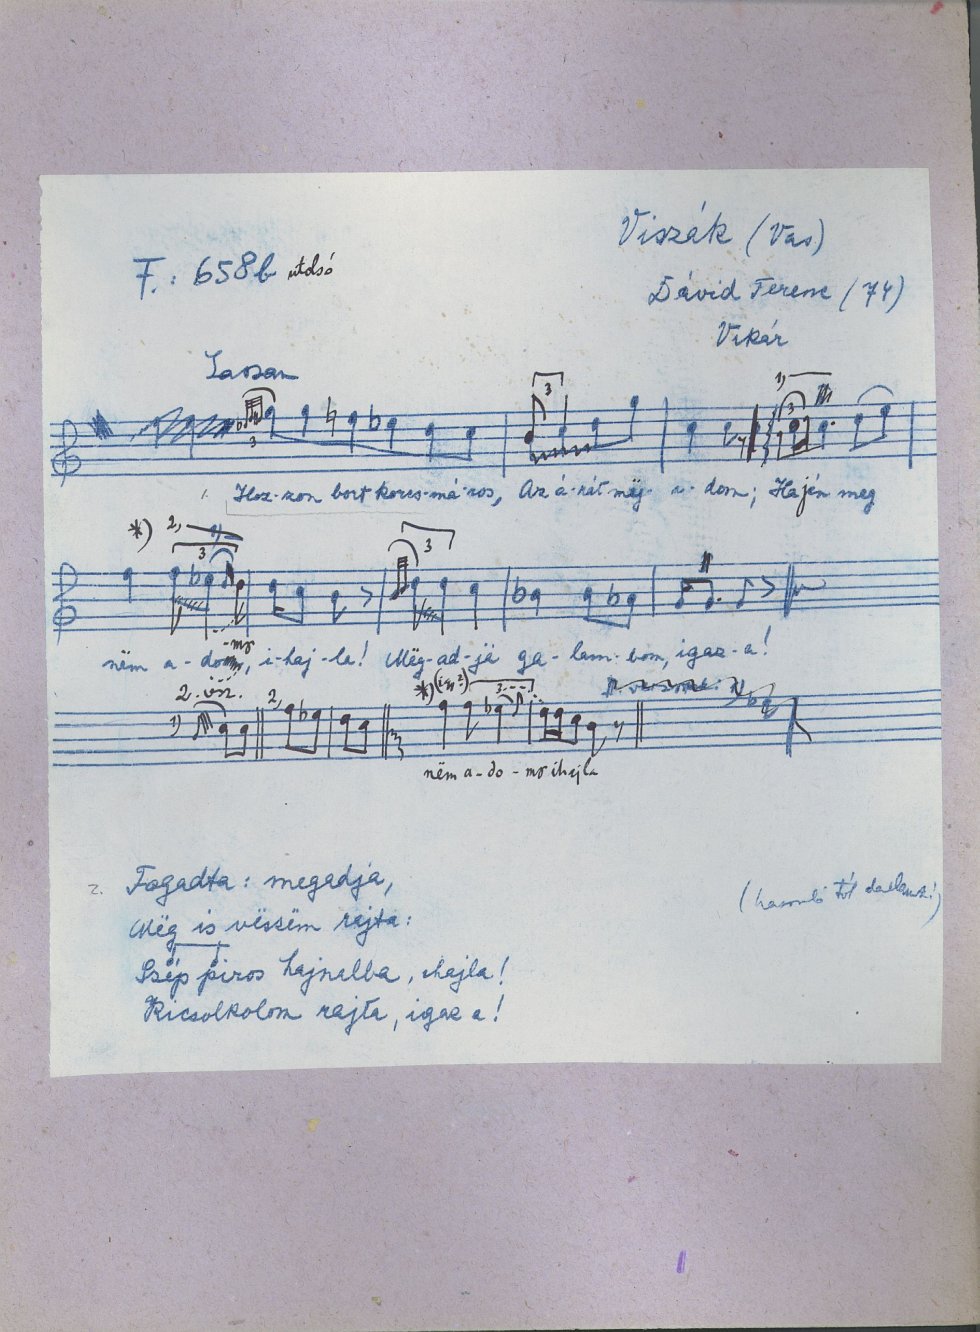 Viszák (Vas)
F.: 658b utolsó
Dávid Ferenc (74)
Vikár
Lassan
3
3
1)
3
1. Hoz-zon bort korcs-má-ros, Az á-rát mëg-a-dom; Ha jén meg
*) 2,
3
3
nëm a-dom, i-haj-la! Mëg-ad-já ga-lam-bom, igaz-a!
2. vsz.
1)
2,
*)
3
nëm a-do-m ihajla
2. Fogadta: megadja,
Mëg is vëszëm rajta:
Szép piros hajnalba, ihajla!
Kicsolkolom rajta, igaz a!
(hasonló tót dallam!)